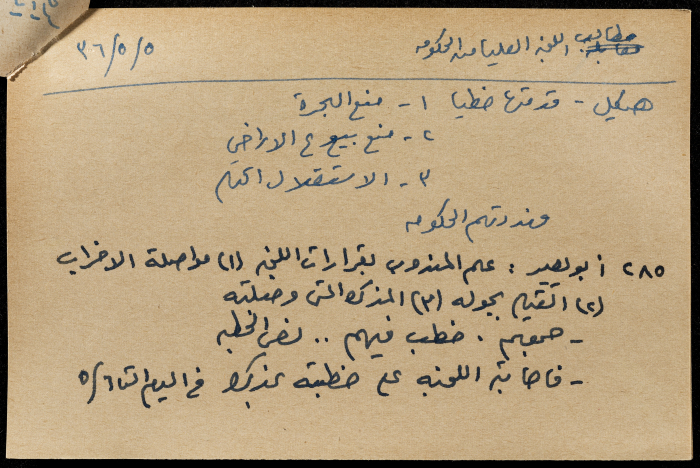 مطاليب اللجنة العليا من الحكومه ٣٦/٥/٥
هيكل - قدمتها خطيا ١ - منع الهجرة
٢ - منع بيوع الاراضي
٣ - الاستقلال التام
هددتهم الحكومه
٢٨٥ أبو بصير : علم المندوب بقرارات اللجنه (١) مواصلة الاضراب
(٢) القيام بجوله (٣) المذكره التي وصلته
- جمعهم . خطب فيهم .. نص الخطبه
- فاجابته اللجنه على خطبته بمذكره في اليوم التا ٥/٦